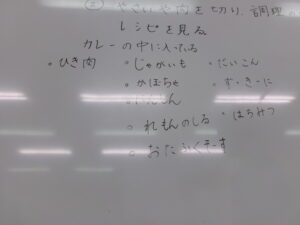 ② やさいや肉を切り、調理
レシピを見る
カレーの中に入っている
。ひき肉 。じゃがいも 。だいこん
。かぼちゃ 。ずっきーに
。にんじん
。れもんのしる 。はちみつ
。おたふくそーす